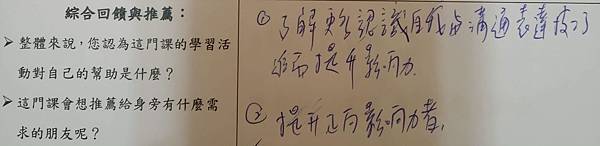 綜合回饋與推薦：
➢ 整體來說，您認為這門課的學習活
動對自己的幫助是什麼？
➢ 這門課會想推薦給身旁有什麼需
求的朋友呢？
① 了解更多認識自我与溝通表達技巧
進而提升影响力
② 提升正向影响力者，